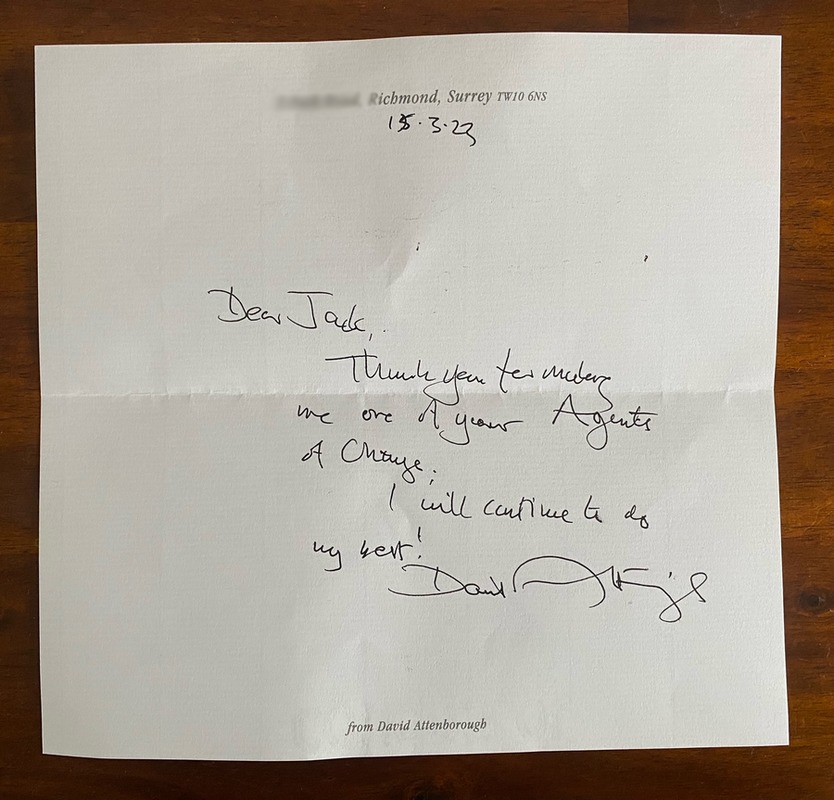 Richmond, Surrey TW10 6NS
15.3.23
Dear Jack,
Thank you for making
me one of your Agents
of Change.
I will continue to do
my best!
David Attenborough
from David Attenborough